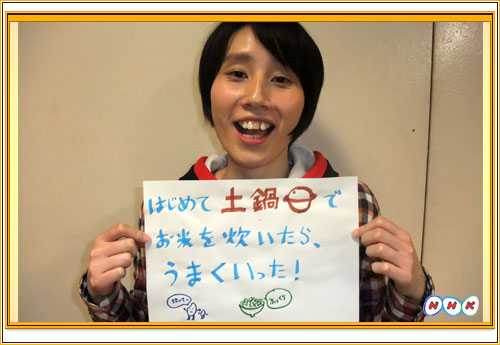 はじめて 土鍋 で
お米を 炊いたら、
うまくいった!
NHK